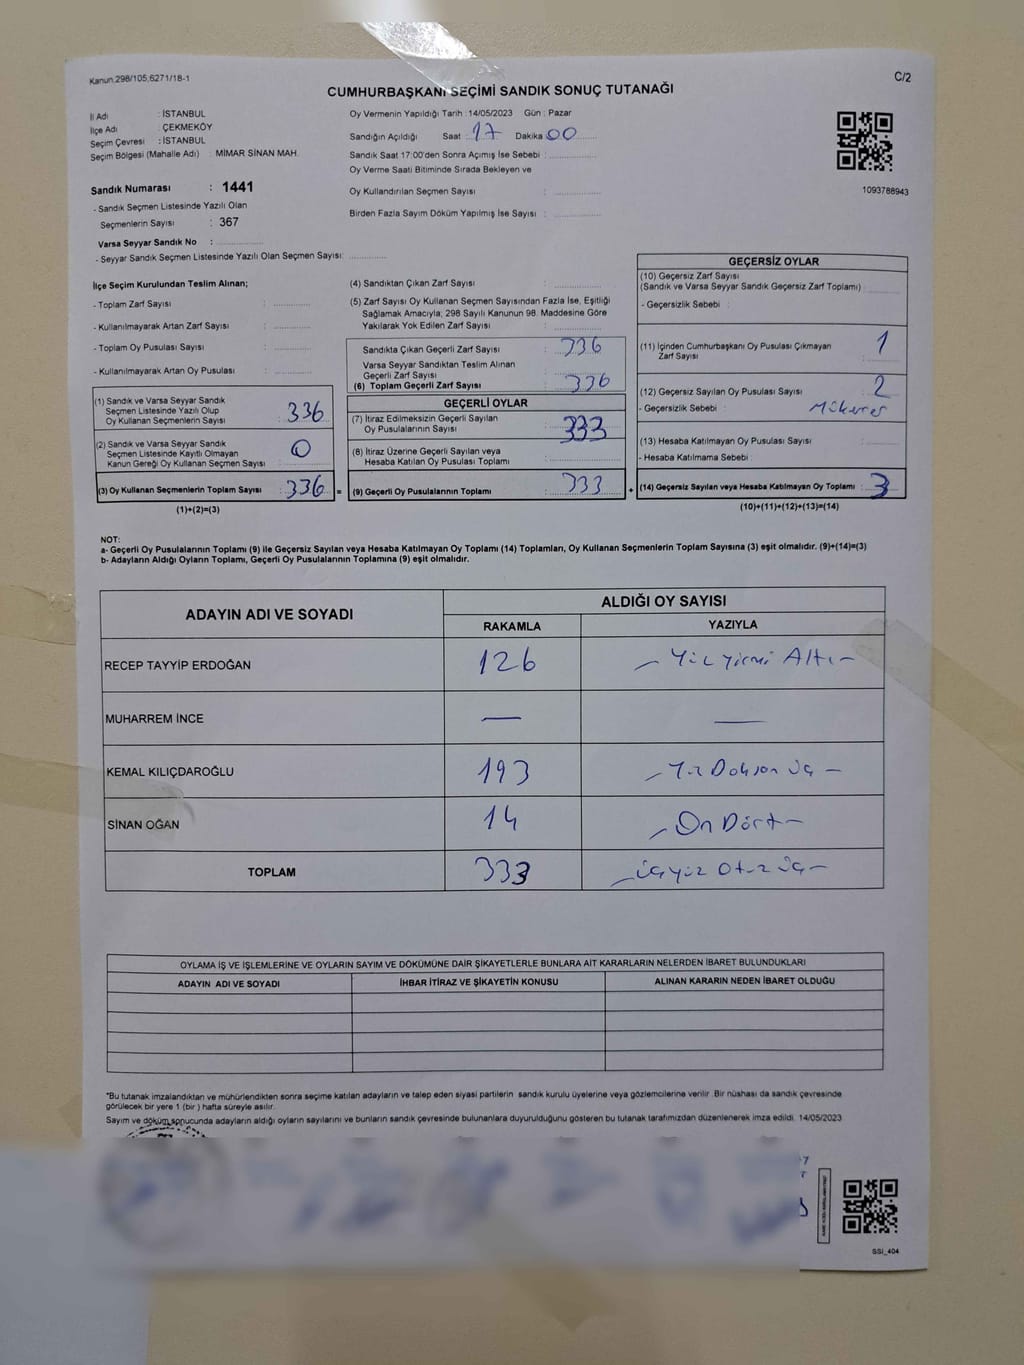 Kanun.298/105;6271/18-1
C/2
CUMHURBAŞKANI SEÇİMİ SANDIK SONUÇ TUTANAĞI
İl Adı : İSTANBUL
İlçe Adı : ÇEKMEKÖY
Seçim Çevresi : İSTANBUL
Seçim Bölgesi (Mahalle Adı) : MİMAR SİNAN MAH.
Sandık Numarası : 1441
- Sandık Seçmen Listesinde Yazılı Olan
Seçmenlerin Sayısı : 367
Varsa Seyyar Sandık No :
- Seyyar Sandık Seçmen Listesinde Yazılı Olan Seçmen Sayısı:
Oy Vermenin Yapıldığı Tarih : 14/05/2023 Gün : Pazar
Sandığın Açıldığı Saat : 17 Dakika 00
Sandık Saat 17:00'den Sonra Açımış İse Sebebi :
Oy Verme Saati Bitiminde Sırada Bekleyen ve
Oy Kullandırılan Seçmen Sayısı :
Birden Fazla Sayım Döküm Yapılmış İse Sayısı :
1093788943
İlçe Seçim Kurulundan Teslim Alınan;
- Toplam Zarf Sayısı :
- Kullanılmayarak Artan Zarf Sayısı :
- Toplam Oy Pusulası Sayısı :
- Kullanılmayarak Artan Oy Pusulası :
(1) Sandık ve Varsa Seyyar Sandık
Seçmen Listesinde Yazılı Olup
Oy Kullanan Seçmenlerin Sayısı : 336
(2) Sandık ve Varsa Seyyar Sandık
Seçmen Listesinde Kayıtlı Olmayan
Kanun Gereği Oy Kullanan Seçmen Sayısı : 0
(3) Oy Kullanan Seçmenlerin Toplam Sayısı : 336 =
(1)+(2)=(3)
(4) Sandıktan Çıkan Zarf Sayısı :
(5) Zarf Sayısı Oy Kullanan Seçmen Sayısından Fazla İse, Eşitliği
Sağlamak Amacıyla; 298 Sayılı Kanunun 98. Maddesine Göre
Yakılarak Yok Edilen Zarf Sayısı :
Sandıkta Çıkan Geçerli Zarf Sayısı : 336
Varsa Seyyar Sandıktan Teslim Alınan
Geçerli Zarf Sayısı :
(6) Toplam Geçerli Zarf Sayısı : 336
GEÇERLİ OYLAR
(7) İtiraz Edilmeksizin Geçerli Sayılan
Oy Pusulalarının Sayısı : 333
(8) İtiraz Üzerine Geçerli Sayılan veya
Hesaba Katılan Oy Pusulası Toplamı :
(9) Geçerli Oy Pusulalarının Toplamı : 333 +
GEÇERSİZ OYLAR
(10) Geçersiz Zarf Sayısı
(Sandık ve Varsa Seyyar Sandık Geçersiz Zarf Toplamı) :
- Geçersizlik Sebebi :
(11) İçinden Cumhurbaşkanı Oy Pusulası Çıkmayan
Zarf Sayısı : 1
(12) Geçersiz Sayılan Oy Pusulası Sayısı : 2
- Geçersizlik Sebebi : Mükerrer
(13) Hesaba Katılmayan Oy Pusulası Sayısı :
- Hesaba Katılmama Sebebi :
(14) Geçersiz Sayılan veya Hesaba Katılmayan Oy Toplamı : 3
(10)+(11)+(12)+(13)=(14)
NOT:
a- Geçerli Oy Pusulalarının Toplamı (9) ile Geçersiz Sayılan veya Hesaba Katılmayan Oy Toplamı (14) Toplamları, Oy Kullanan Seçmenlerin Toplam Sayısına (3) eşit olmalıdır. (9)+(14)=(3)
b- Adayların Aldığı Oyların Toplamı, Geçerli Oy Pusulalarının Toplamına (9) eşit olmalıdır.
ADAYIN ADI VE SOYADI ALDIĞI OY SAYISI
RAKAMLA YAZIYLA
RECEP TAYYİP ERDOĞAN 126 – Yüz Yirmi Altı –
MUHARREM İNCE — —
KEMAL KILIÇDAROĞLU 193 – Yüz Doksan Üç –
SİNAN OĞAN 14 – On Dört –
TOPLAM 333 – Üçyüz Otuz Üç –
OYLAMA İŞ VE İŞLEMLERİNE VE OYLARIN SAYIM VE DÖKÜMÜNE DAİR ŞİKAYETLERLE BUNLARA AİT KARARLARIN NELERDEN İBARET BULUNDUKLARI
ADAYIN ADI VE SOYADI İHBAR İTİRAZ VE ŞİKAYETİN KONUSU ALINAN KARARIN NEDEN İBARET OLDUĞU
"Bu tutanak imzalandıktan ve mühürlendikten sonra seçime katılan adayların ve talep eden siyasi partilerin sandık kurulu üyelerine veya gözlemcilerine verilir. Bir nüshası da sandık çevresinde
görülecek bir yere 1 (bir ) hafta süreyle asılır.
Sayım ve döküm sonucunda adayların aldığı oyların sayılarını ve bunların sandık çevresinde bulunanlara duyurulduğunu gösteren bu tutanak tarafımızdan düzenlenerek imza edildi. 14/05/2023
SSİ_404